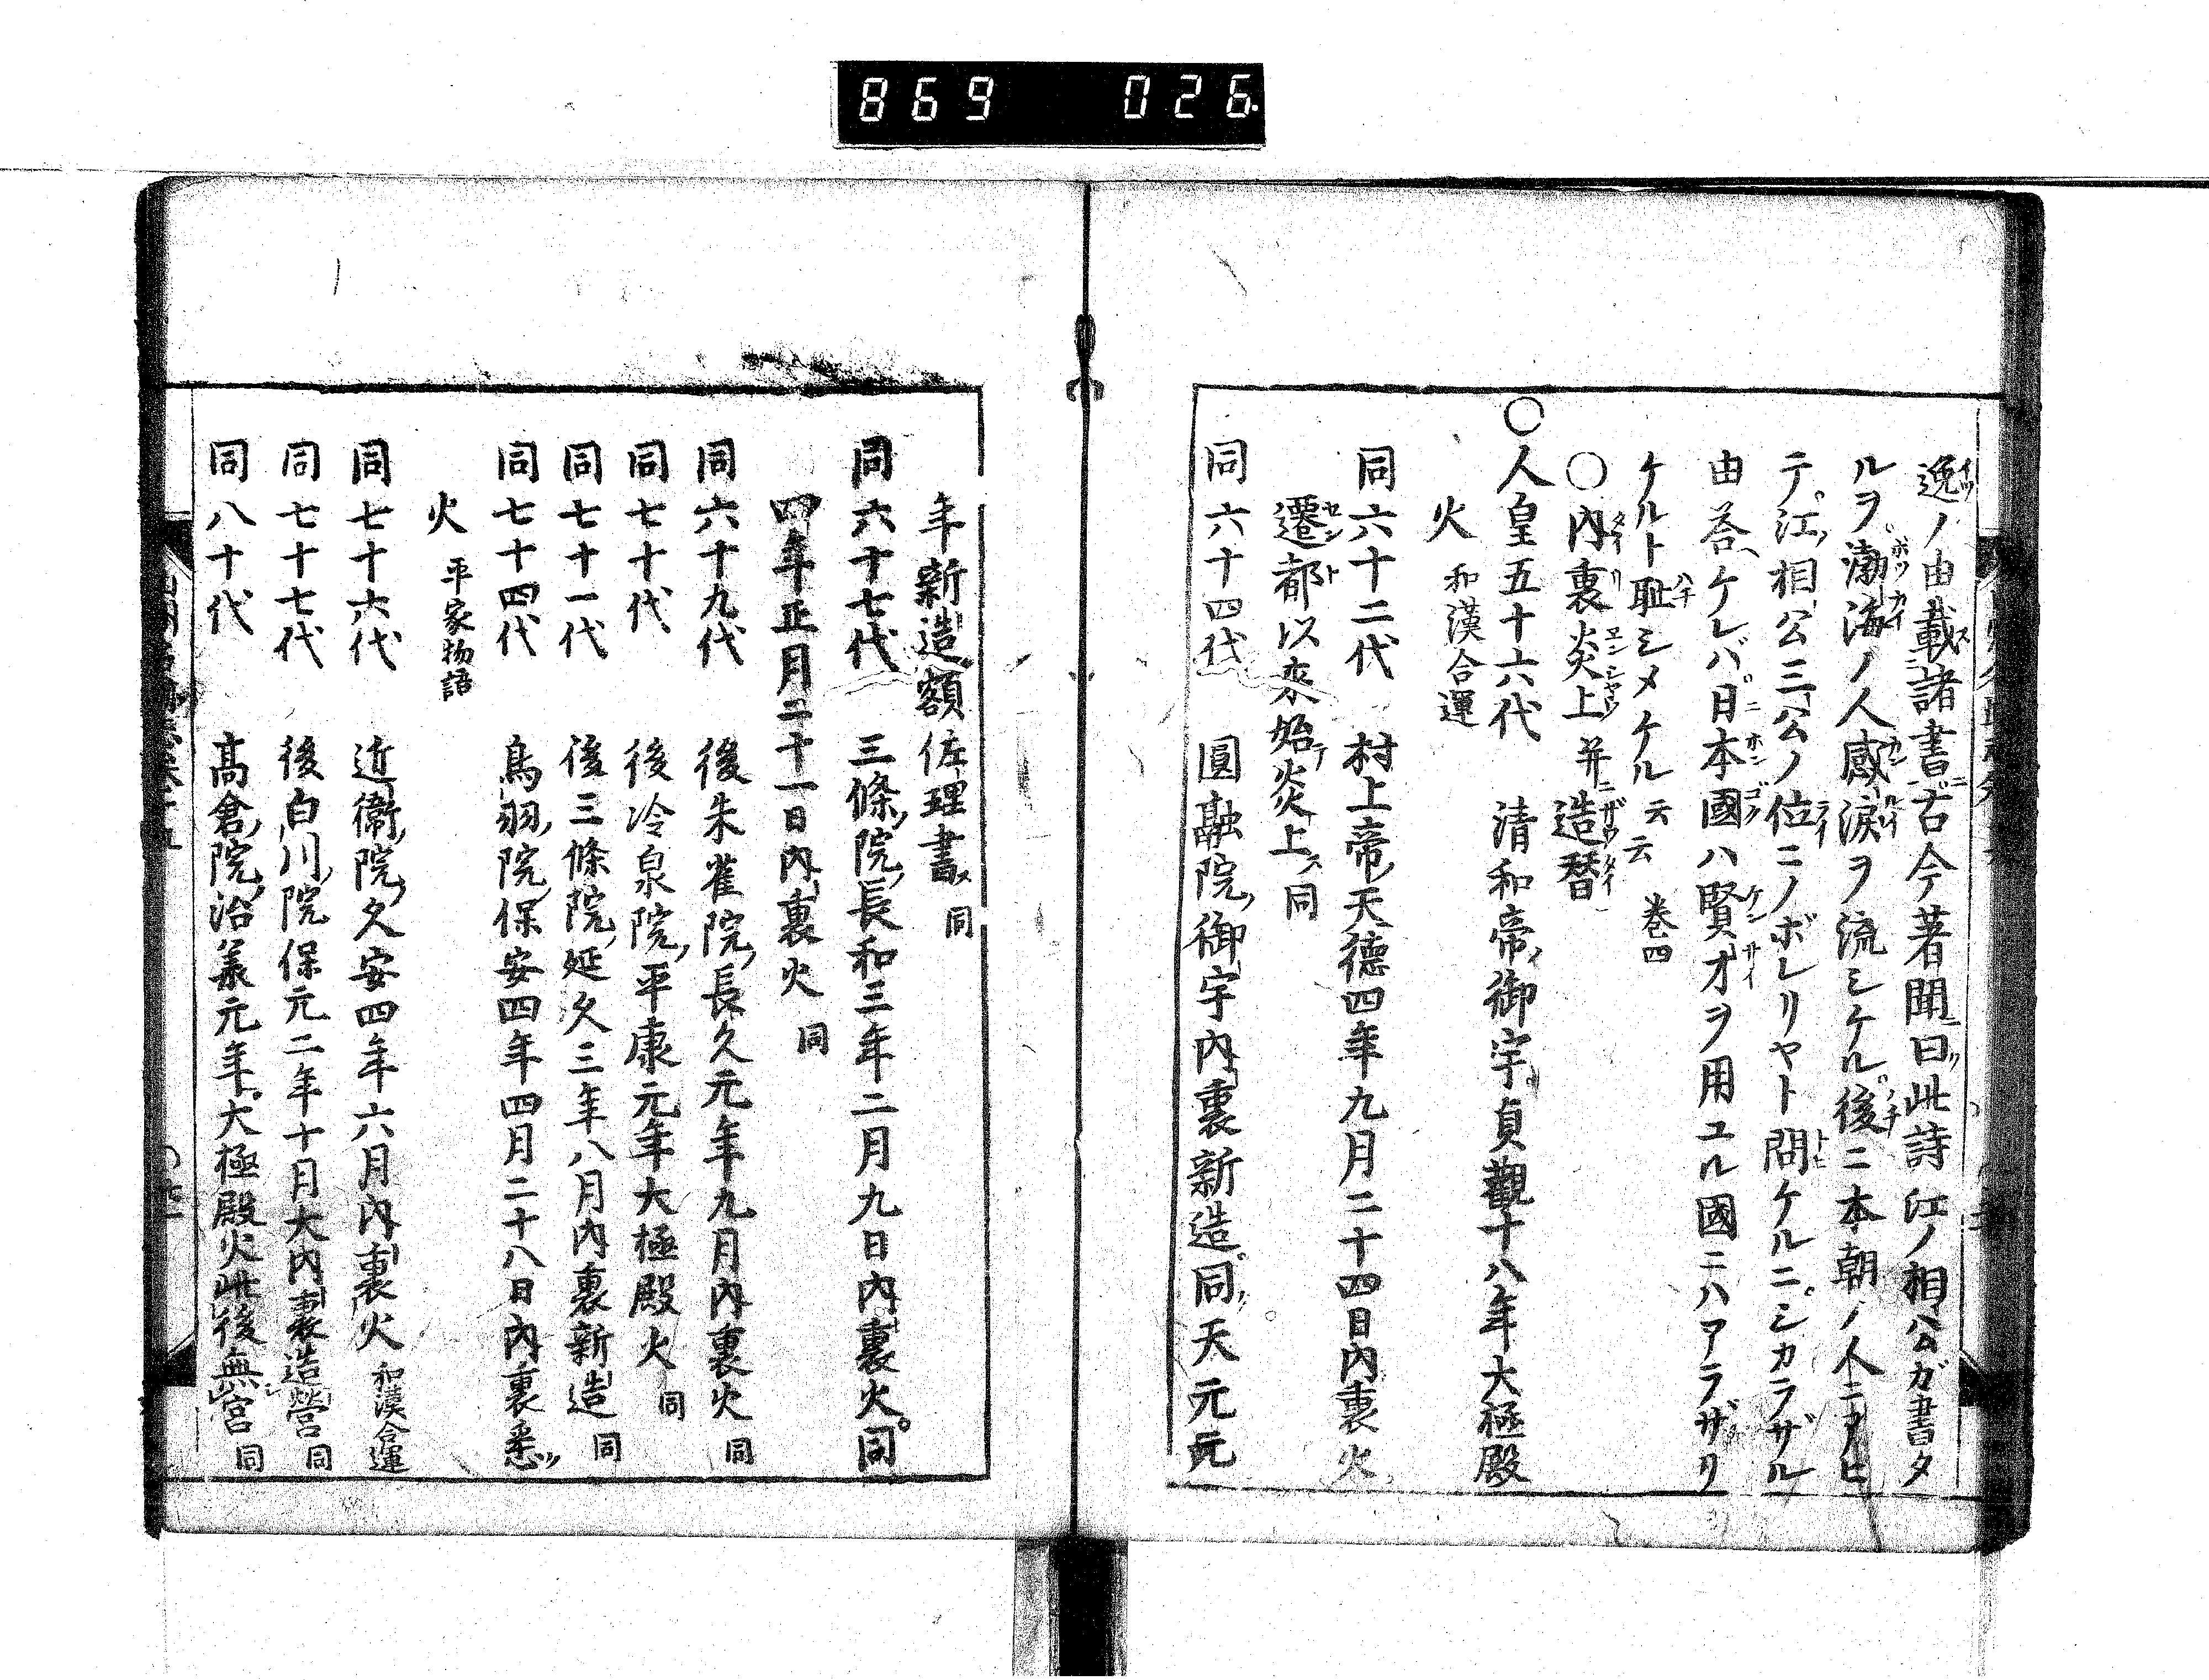 869 026
逸ノ由載諸書古今著聞曰此詩江ノ相公ガ書タ
ルヲ渤海ノ人感涙ヲ流シケル後ニ本朝ノ人ニアヒ
テ江相公三公ノ位ニノボレリヤト問ケルニシカラザル
由荅ケレバ日本國ハ賢才ヲ用ユル國ニハアラザリ
ケルト耻シメケル云云 巻四
〇内裏炎上并造替
〇人皇五十六代 清和帝御宇貞觀十八年大極殿
火 和漢合運
同六十二代 村上帝天德四年九月二十四日内裏火
遷都以來始炎上同
同六十四代 圓融院御宇内裏新造同天元元
年新造額佐理書 同
同六十七代 三條院長和三年二月九日内裏火同
四年正月二十一日内裏火 同
同六十九代 後朱雀院長久元年九月内裏火 同
同七十代 後冷泉院平康元年大極殿火 同
同七十一代 後三條院延久三年八月内裏新造 同
同七十四代 鳥羽院保安四年四月二十八日内裏悉
火 平家物語
同七十六代 近衞院久安四年六月内裏火 和漢合運
同七十七代 後白川院保元二年十月大内裏造營 同
同八十代 髙倉院治美元年大極殿火此後無宮 同